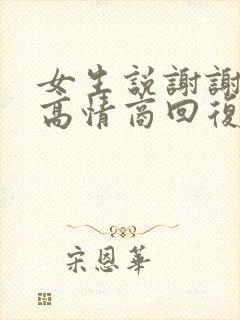 女生説謝謝
高情商回復
宋恩華